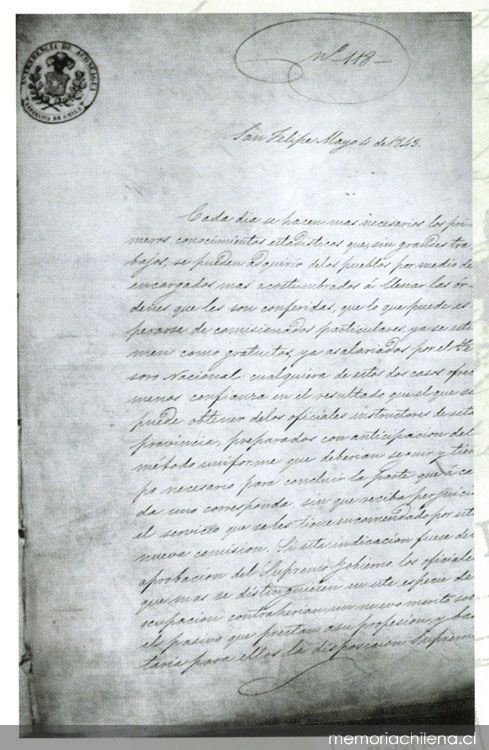 INTENDENCIA DE ACONCAGUA
REPUBLICA DE CHILE
Nº 118
San Felipe Mayo 4 de 1843.
Cada dia se hacen mas necesarios los pri-
meros conocimientos estadisticos que, sin grandes tra-
bajos, se pueden adquirir delos pueblos por medio de
encargados mas acostumbrados á llenar las ór-
denes que les son conferidas, que lo que puede es-
perarse de comisionados particulares, ya se esti-
men como gratuitos, ya asalariados por el Te-
soro Nacional: cualquiera de estos dos casos ofrece
menos confianza en el resultado que el que se
puede obtener delos oficiales instructores de esta
provincia, preparados con anticipacion del
método uniforme que deberian seguir y tiem-
po necesario para concluir la parte que á ca-
da uno corresponda, sin que reciba perjuicio
el servicio que se les tiene encomendado por esta
nueva comision. Si esta indicacion fuese de
aprobacion del Supremo Gobierno, los oficiales
que mas se distinguiesen en esta especie de
ocupacion contraherian un nuevo merito sobre
el pasivo que prestan asu profesion, y bas-
taria para ellos la disposicion Suprema
memoriachilena.cl